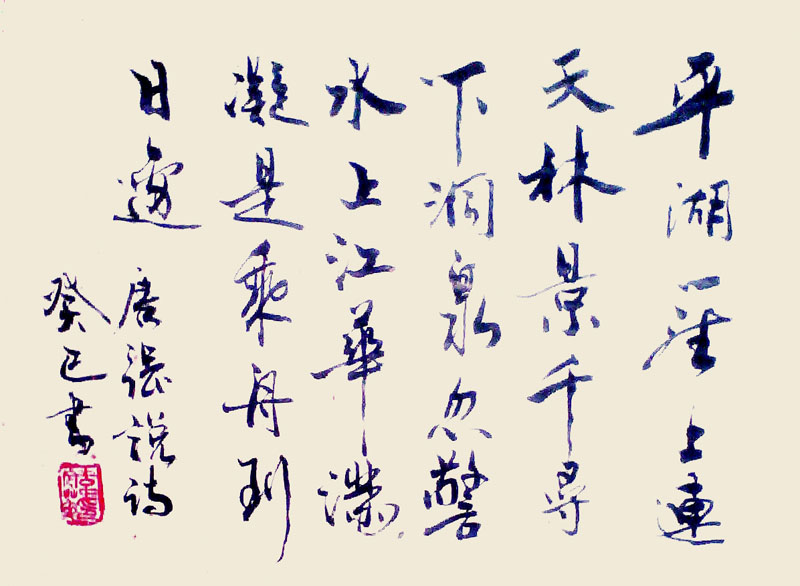 平湖一望上連
天林景千尋
下洞泉忽警
水上江華滿
凝是乘舟到
日邊
唐張說詩
癸巳書